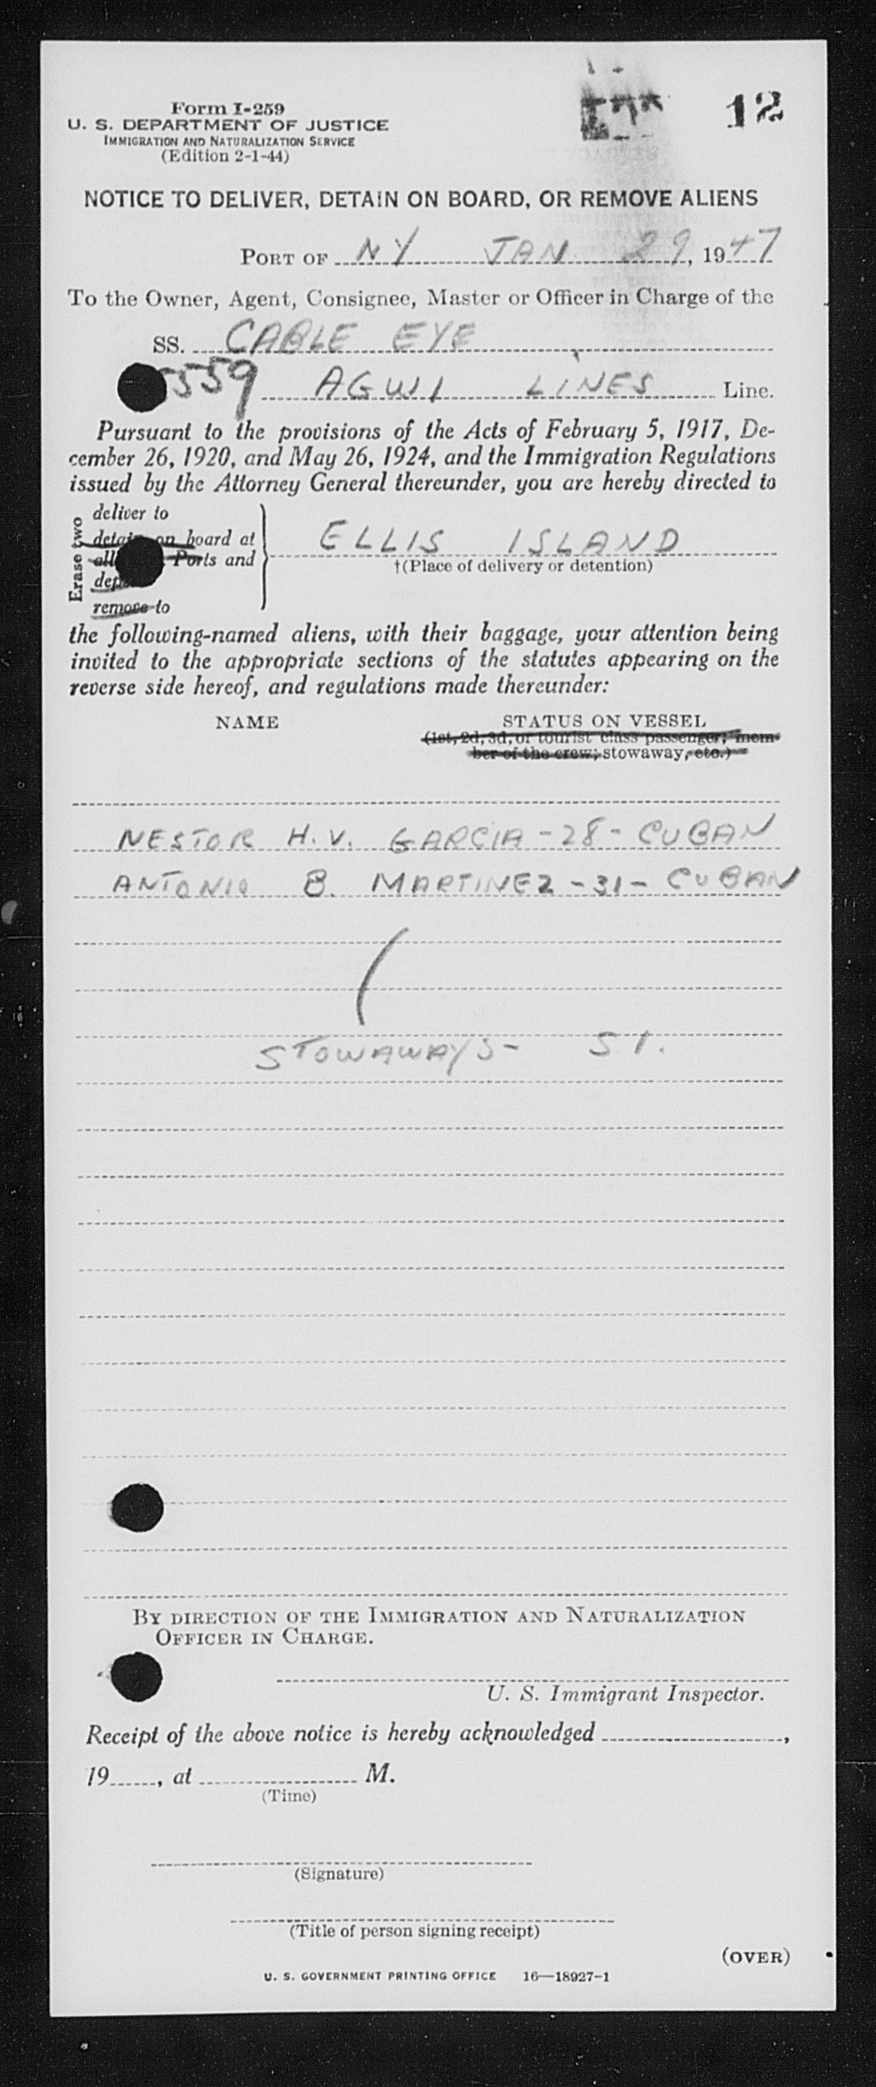 12
Form I-259
U. S. DEPARTMENT OF JUSTICE
IMMIGRATION AND NATURALIZATION SERVICE
(Edition 2-1-44)
NOTICE TO DELIVER, DETAIN ON BOARD, OR REMOVE ALIENS
PORT OF NY JAN 29, 1947
To the Owner, Agent, Consignee, Master or Officer in Charge of the
SS. CABLE EYE
559 AGWI LINES Line.
Pursuant to the provisions of the Acts of February 5, 1917, De-
cember 26, 1920, and May 26, 1924, and the Immigration Regulations
issued by the Attorney General thereunder, you are hereby directed to
Erase two
deliver to
detain on board at
all Ports and
remove to
ELLIS ISLAND
†(Place of delivery or detention)
the following-named aliens, with their baggage, your attention being
invited to the appropriate sections of the statutes appearing on the
reverse side hereof, and regulations made thereunder:
NAME STATUS ON VESSEL
(1st, 2d, 3d, or tourist class passenger; mem-
ber of the crew; stowaway, etc.)
NESTOR H. V. GARCIA - 28 - CUBAN
ANTONIO B. MARTINEZ - 31 - CUBAN
STOWAWAYS - S I.
BY DIRECTION OF THE IMMIGRATION AND NATURALIZATION
OFFICER IN CHARGE.
U. S. Immigrant Inspector.
Receipt of the above notice is hereby acknowledged ,
19 , at M.
(Time)
(Signature)
(Title of person signing receipt)
(OVER)
U. S. GOVERNMENT PRINTING OFFICE 16—18927-1